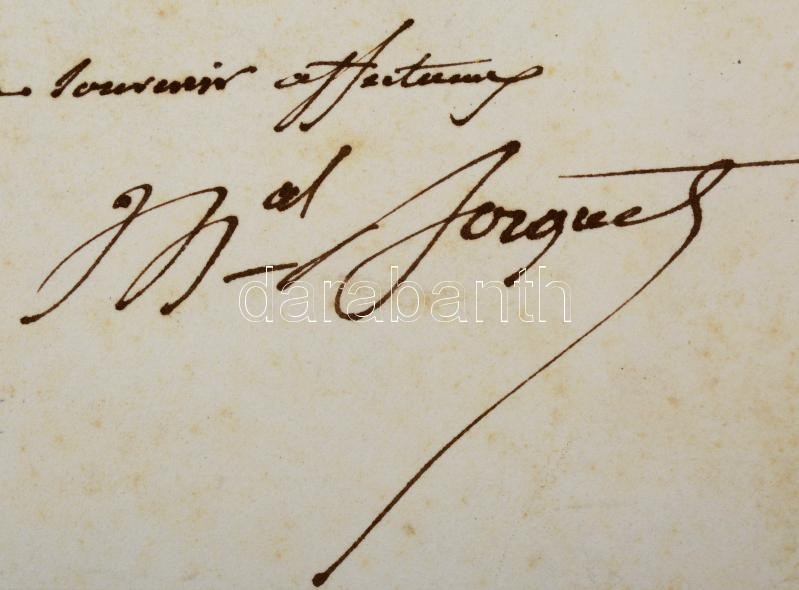 souvenir affectueux
Mal Jorguet
darabanth